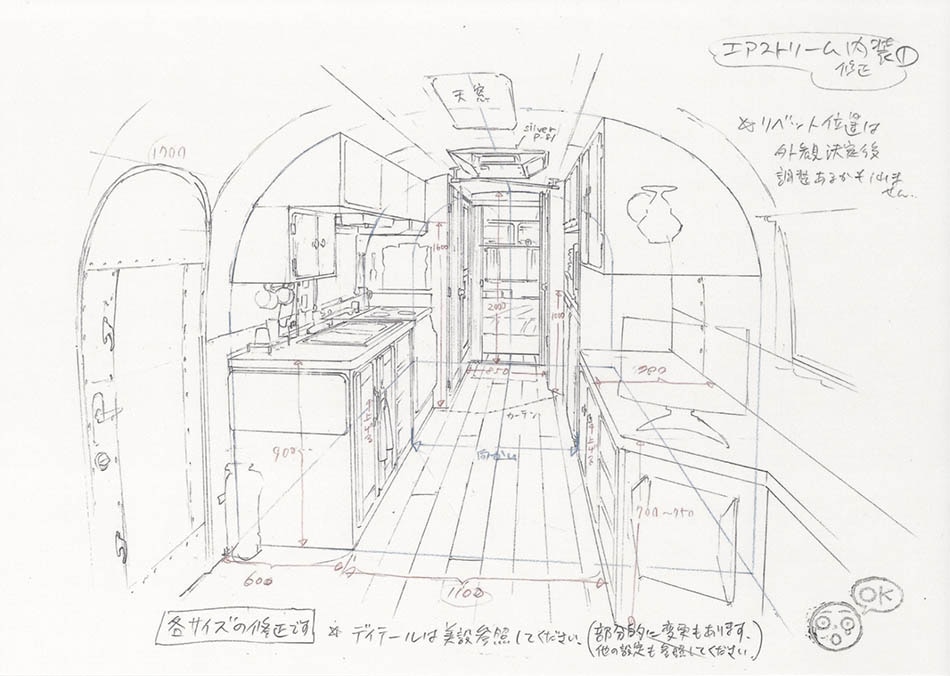 エアストリーム内装①
修正
☆リベット位置は
外観決定後
調整あるかもしれま
せん。
天窓
silver
P-81
1700
1600
2000
1000
850
カーテン
580
900
700〜750
600
1100
各サイズの修正です
☆ディテールは美設参照してください。
(部分的に変更もあります。
他の設定も参照してください。)
OK